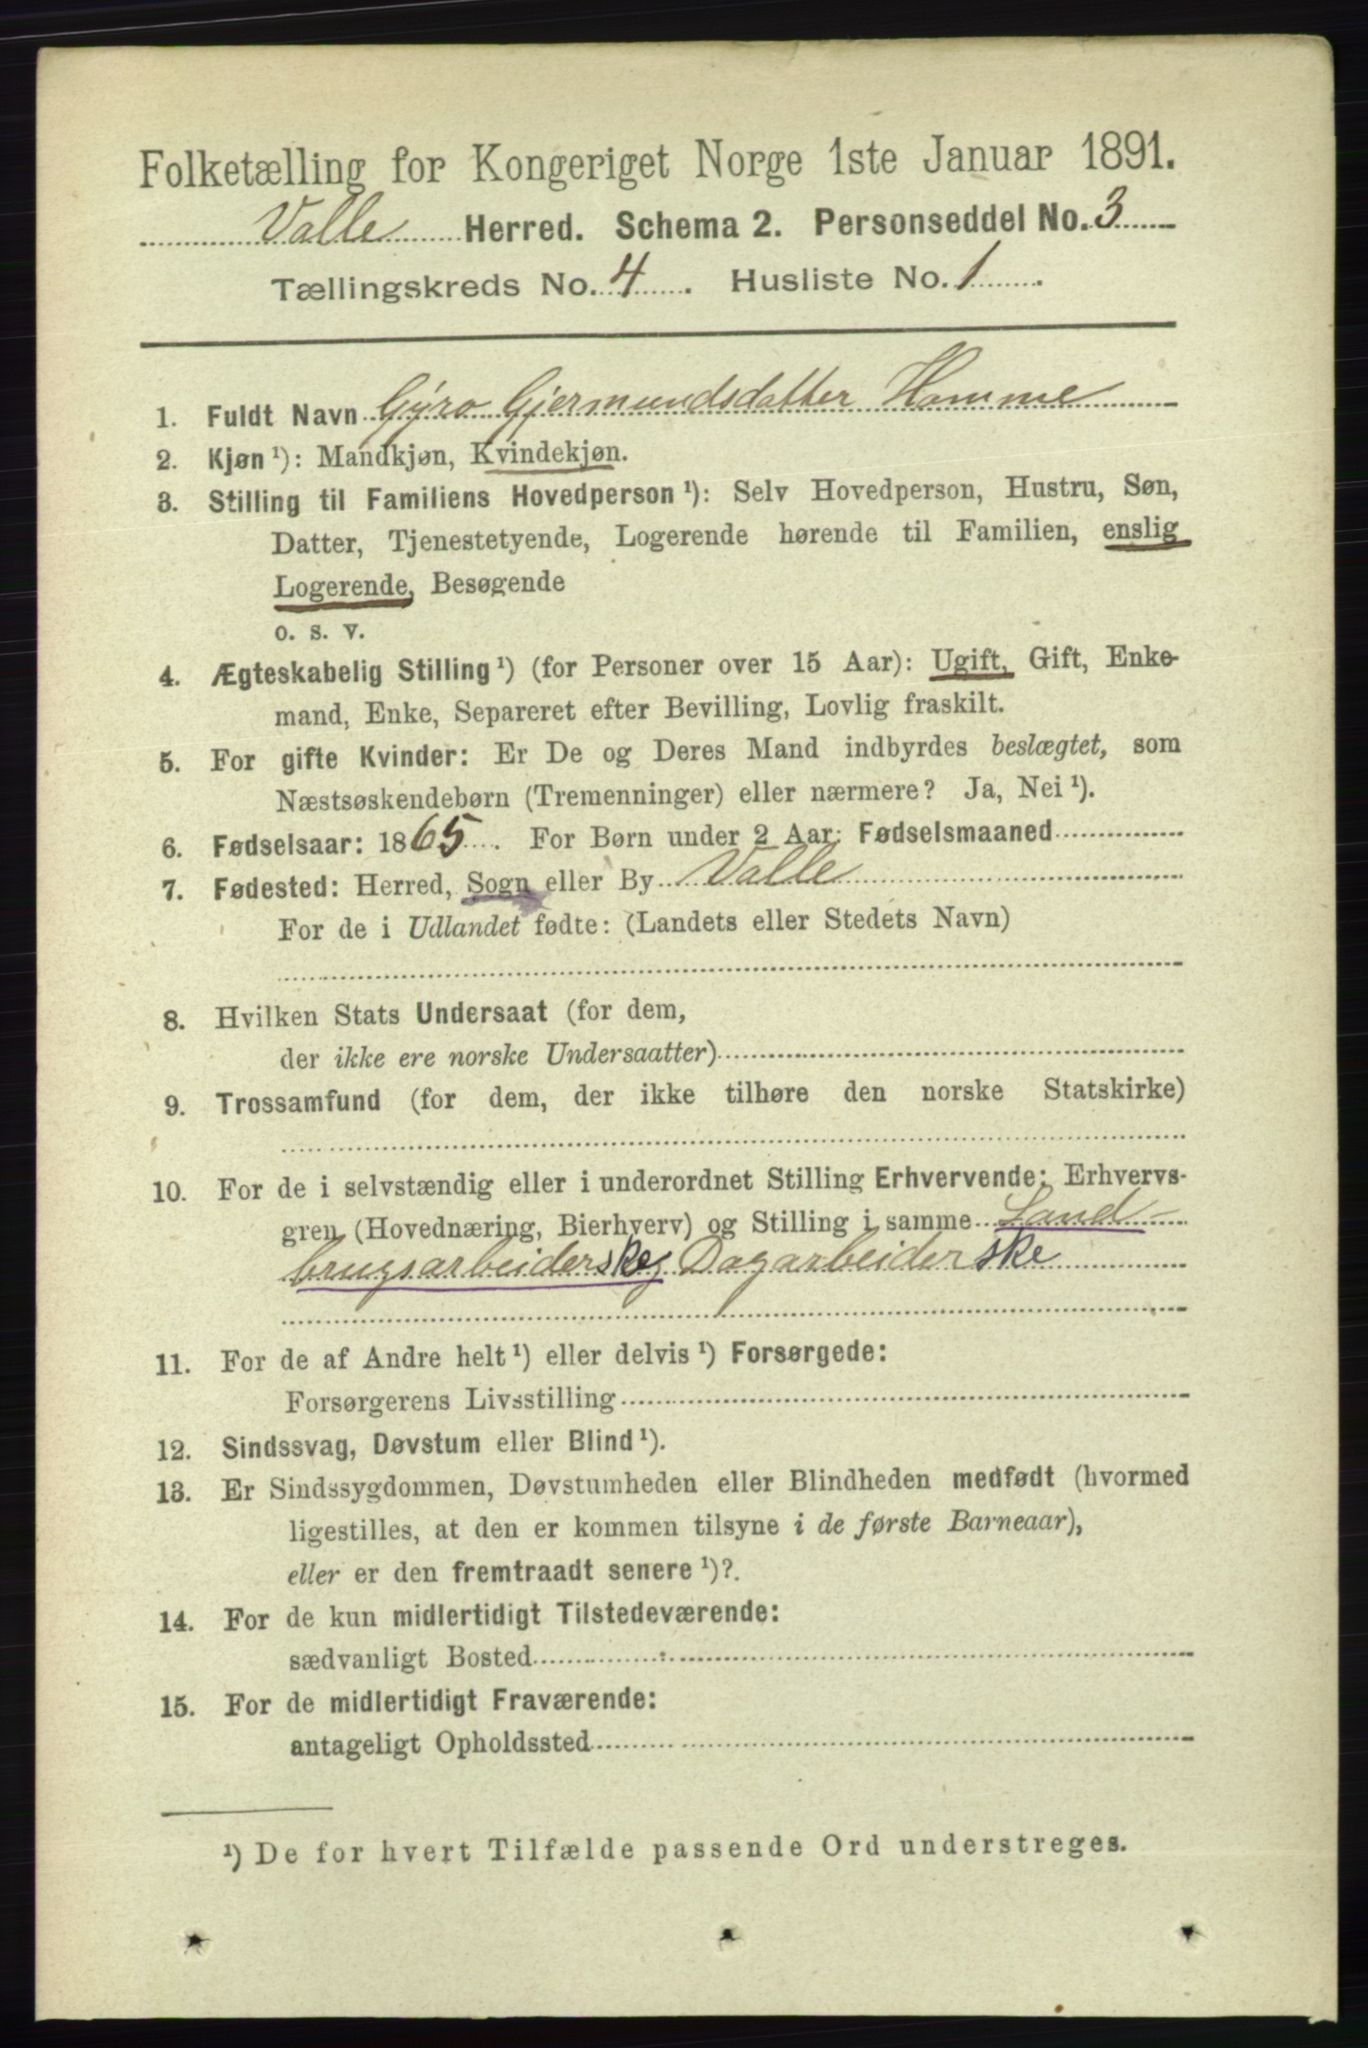 Folketælling for Kongeriget Norge 1ste Januar 1891.
Valle Herred. Schema 2. Personseddel No. 3
Tællingskreds No. 4. Husliste No. 1.
1. Fuldt Navn Gyro Gjermundsdatter Homme
2. Kjøn ¹): Mandkjøn, Kvindekjøn.
3. Stilling til Familiens Hovedperson ¹): Selv Hovedperson, Hustru, Søn,
Datter, Tjenestetyende, Logerende hørende til Familien, enslig
Logerende, Besøgende
o. s. v.
4. Ægteskabelig Stilling ¹) (for Personer over 15 Aar): Ugift, Gift, Enke-
mand, Enke, Separeret efter Bevilling, Lovlig fraskilt.
5. For gifte Kvinder: Er De og Deres Mand indbyrdes beslægtet, som
Næstsøskendebørn (Tremenninger) eller nærmere? Ja, Nei ¹).
6. Fødselsaar: 1865. For Børn under 2 Aar: Fødselsmaaned
7. Fødested: Herred, Sogn eller By Valle
For de i Udlandet fødte: (Landets eller Stedets Navn)
8. Hvilken Stats Undersaat (for dem,
der ikke ere norske Undersaatter)
9. Trossamfund (for dem, der ikke tilhøre den norske Statskirke)
10. For de i selvstændig eller i underordnet Stilling Erhvervende: Erhvervs-
gren (Hovednæring, Bierhverv) og Stilling i samme Land-
brugsarbeiderske, Dagarbeiderske
11. For de af Andre helt ¹) eller delvis ¹) Forsørgede:
Forsørgerens Livsstilling
12. Sindssvag, Døvstum eller Blind ¹).
13. Er Sindssygdommen, Døvstumheden eller Blindheden medfødt (hvormed
ligestilles, at den er kommen tilsyne i de første Barneaar),
eller er den fremtraadt senere ¹)?.
14. For de kun midlertidigt Tilstedeværende:
sædvanligt Bosted
15. For de midlertidigt Fraværende:
antageligt Opholdssted
¹) De for hvert Tilfælde passende Ord understreges.